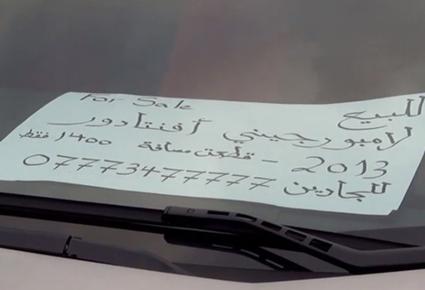 For Sale للبيع
لامبورجيني أفنتادور
2013 - قطعت مسافة 1400 فقط
للجادين 07773477777